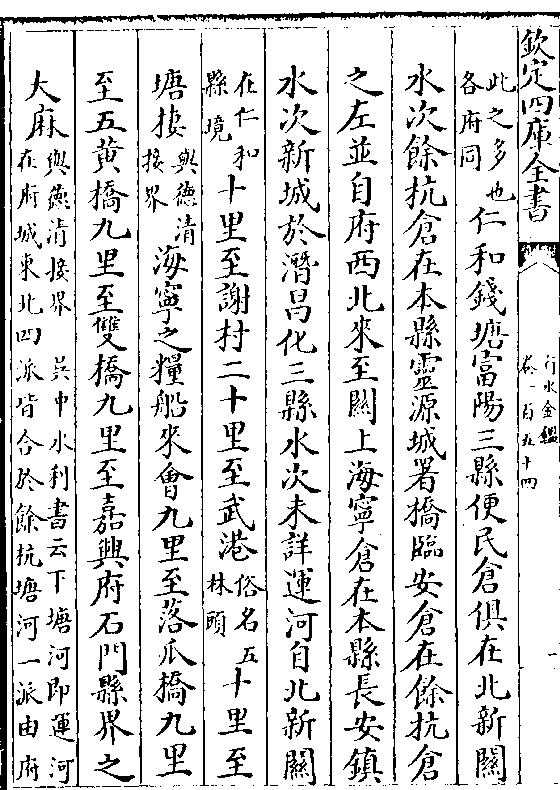 欽定四庫全書
行水金鑑
卷一百五十四
此之多也
各府同
仁和錢塘富陽三縣便民倉俱在北新關
水次餘杭倉在本縣靈源城署橋臨安倉在餘杭倉
之左並自府西北來至關上海寧倉在本縣長安鎮
水次新城於潛昌化三縣水次未詳運河自北新關
在仁和
縣境
十里至謝村二十里至武港
俗名五
林頭
十里至
塘捿
與德清
接界
海寧之糧船來會九里至落瓜橋九里
至五黄橋九里至雙橋九里至嘉興府石門縣界之
大麻
與德清接界 吳中水利書云下塘河即運河
在府城東北四派皆合於餘杭塘河一派由府